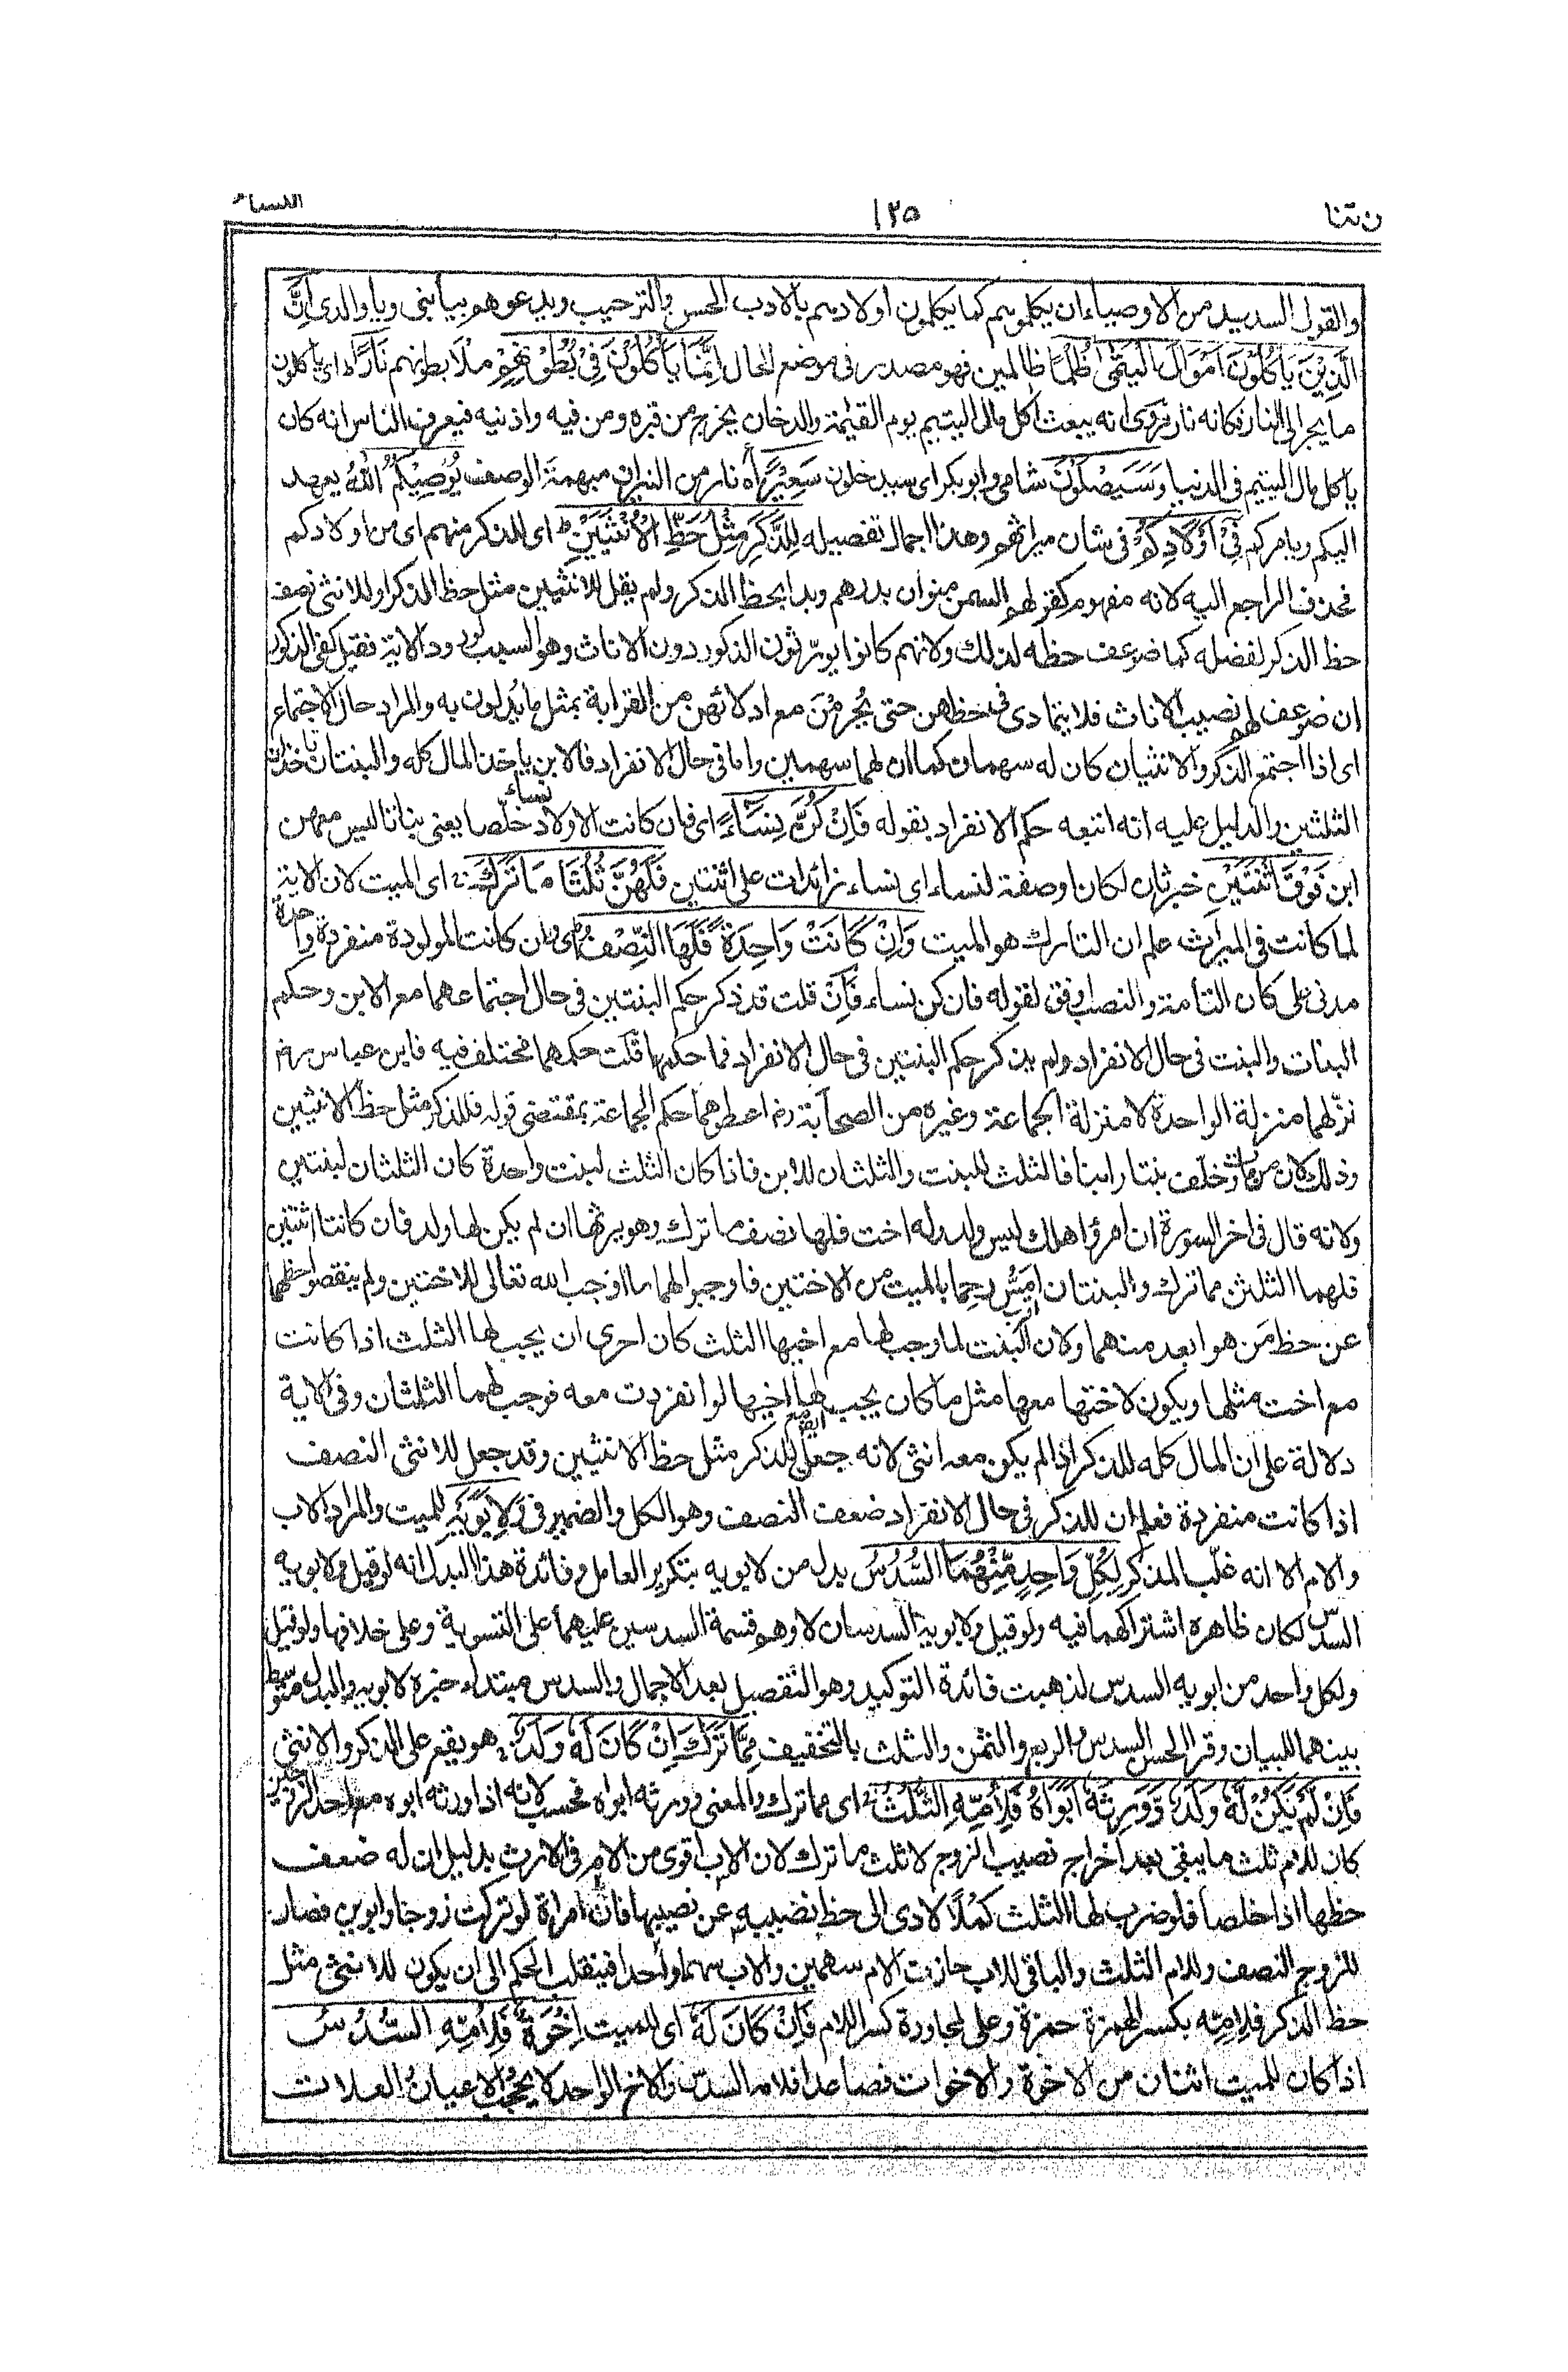 ن تنا ١٢٥ النساء
والقول السديد من الاوصياء ان يكلموهم كما يكلمون اولادهم بالادب الحسن والترحيب ويدعوهم بيا بنى ويا والدى اِنَّ
الَّذِيْنَ يَاْكُلُوْنَ اَمْوَالَ الْيَتٰمٰى ظُلْمًا ظالمين فهو مصدر فى موضع الحال اِنَّمَا يَاْكُلُوْنَ فِيْ بُطُوْنِهِمْ ملأ بطونهم نَارًا اى ياكلون
ما يجر الى النار فكانه نار روى انه يبعث اكل مال اليتيم يوم القيٰمة والدخان يخرج من قبره ومن فيه واذنيه فيعرف الناس انه كان
ياكل مال اليتيم فى الدنيا وَسَيَصْلَوْنَ شامى وابو بكر اى سيدخلون سَعِيْرًا نارا من النيران مبهمة الوصف يُوْصِيْكُمُ اللّٰهُ يعهد
اليكم ويامركم فِيْ اَوْلَادِكُمْ فى شان ميراثهم وهذا اجمال تفصيله لِلذَّكَرِ مِثْلُ حَظِّ الْاُنْثَيَيْنِ اى للذكر منهم اى من اولادكم
فحذف الراجع اليه لانه مفهوم كقولهم السمن منوان بدرهم وبدأ بحظ الذكر ولم يقل للانثيين مثل حظ الذكر او للانثى نصف
حظ الذكر لفضله كما ضوعف حظه لذلك ولانهم كانوا يورّثون الذكور دون الاناث وهو السبب لورود الاية فقيل كفى الذكور
ان ضوعف لهم نصيب الاناث فلا يتمادى فى حظهن حتى يُحرمْنَ مع ادلائهن من القرابة بمثل ما يُدلون به والمراد حال الاجتماع
اى اذا اجتمع الذكر والانثيان كان له سهمان كما ان لهما سهمين واما فى حال الانفراد فالابن ياخذ المال كله والبنتان تاخذان
الثلثين والدليل عليه انه اتبعه حكم الانفراد بقوله فَاِنْ كُنَّ نِسَآءً اى فان كانت الاولاد نساء خلّصا يعنى بناتا ليس معهن
ابن فَوْقَ اثْنَتَيْنِ خبر ثان لكان او صفة لنساء اى نساء زائدات على اثنتين فَلَهُنَّ ثُلُثَا مَا تَرَكَ اى الميت لان الاية
لما كانت فى الميراث علم ان التارك هو الميت وَاِنْ كَانَتْ وَاحِدَةً فَلَهَا النِّصْفُ اى وان كانت المولودة منفردة واحدة
مدنى على كان التامة والنصب اوفق لقوله فان كن نساء فَاِنْ قلت قد ذكر حكم البنتين فى حال اجتماعهما مع الابن وحكم
البنات والبنت فى حال الانفراد ولم يذكر حكم البنتين فى حال الانفراد فما حكمهما قلت حكمهما مختلف فيه فابن عباس رضـ
نزّلهما منزلة الواحدة لا منزلة الجماعة وغيره من الصحابة رضـ اعطوهما حكم الجماعة بمقتضى قوله فللذكر مثل حظ الانثيين
وذلك لان من مات وخلّف بنتا وابنا فالثلث للبنت والثلثان للابن فاذا كان الثلث لبنت واحدة كان الثلثان لبنتين
ولانه قال فى اخر السورة ان امرؤا هلك ليس له ولد وله اخت فلها نصف ما ترك وهو يرثها ان لم يكن لها ولد فان كانتا اثنتين
فلهما الثلثن مما ترك والبنتان امسُّ رحما بالميت من الاختين فاوجبوا لهما ما اوجب الله تعالى للاختين ولم ينقصوا حظهما
عن حظ مَن هو ابعد منهما ولان البنت لما وجب لها مع اخيها الثلث كان احرى ان يجب لها الثلث اذا كانت
مع اخت مثلها ويكون لاختها معها مثل ما كان يجب لها ايضا مع اخيها لو انفردت معه فوجب لهما الثلثان وفى الاية
دلالة على ان المال كله للذكر اذا لم يكن معه انثى لانه جعل للذكر مثل حظ الانثيين وقد جعل للانثى النصف
اذا كانت منفردة فعلم ان للذكر فى حال الانفراد ضعف النصف وهو الكل والضمير فى وَلِاَبَوَيْهِ للميت والمراد الاب
والام الا انه غلّب المذكر لِكُلِّ وَاحِدٍ مِّنْهُمَا السُّدُسُ بدل من لابويه بتكرير العامل وفائدة هذا البدل انه لو قيل ولابويه
السدس لكان ظاهره اشتراكهما فيه ولو قيل ولابويه السدسان لاوهم قسمة السدسين عليهما على التسوية وعلى خلافها ولو قيل
ولكل واحد من ابويه السدس لذهبت فائدة التوكيد وهو التفصيل بعد الاجمال والسدس مبتداء خبره لابويه والبدل متوسط
بينهما للبيان وقرا الحسن السدس والربع والثمن والثلث بالتخفيف مِمَّا تَرَكَ اِنْ كَانَ لَهٗ وَلَدٌ هو يقع على الذكر والانثى
فَاِنْ لَّمْ يَكُنْ لَّهٗ وَلَدٌ وَّوَرِثَهٗٓ اَبَوَاهُ فَلِاُمِّهِ الثُّلُثُ اى مما ترك والمعنى وورثه ابواه فحسب لانه اذا ورثه ابواه مع احد الزوجين
كان للام ثلث ما يبقى بعد اخراج نصيب الزوج لا ثلث ما ترك لان الاب اقوى من الام فى الارث بدليل ان له ضعف
حظها اذا خلصا فلو ضرب لها الثلث كمُلًا لادى الى حظ نصيبه عن نصيبها فان امراة لو تركت زوجا وابوين فصار
للزوج النصف وللام الثلث والباقى للاب حازت الام سهمين والاب سهما واحدا فينقلب الحكم الى ان يكون للانثى مثل
حظ الذكر فلِامِّه بكسر الهمزة حمزة وعلى لمجاورة كسر اللام فَاِنْ كَانَ لَهٗٓ اى للميت اِخْوَةٌ فَلِاُمِّهِ السُّدُسُ
اذا كان للميت اثنان من الاخوة والاخوات فصاعدا فلامه السدس والاخ الواحد لا يحجب الاعيان العلات